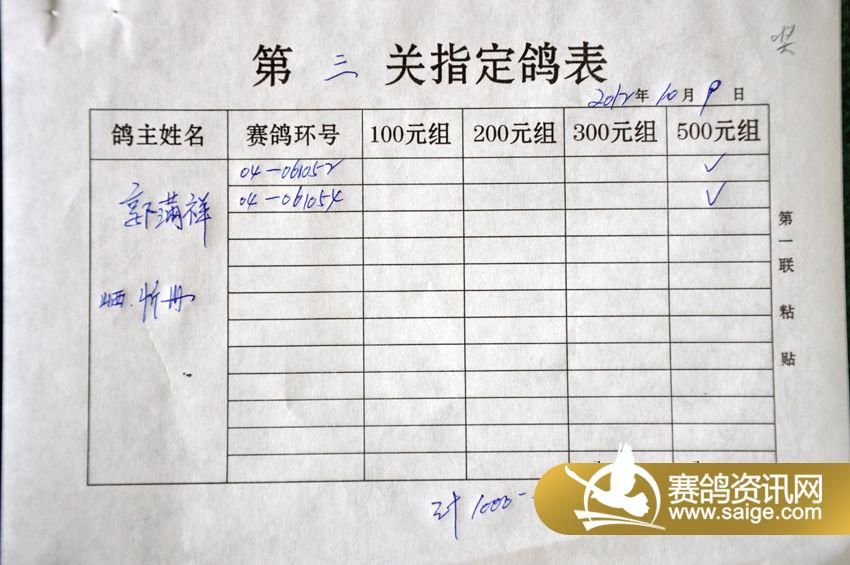 第 三 关指定鸽表
2012年10月9日
鸽主姓名 赛鸽环号 100元组 200元组 300元组 500元组
04-061052 ✓
04-061054 ✓
郭满祥
山西.忻州
第一联 粘贴
计 1000-
赛鸽资讯网
www.saige.com